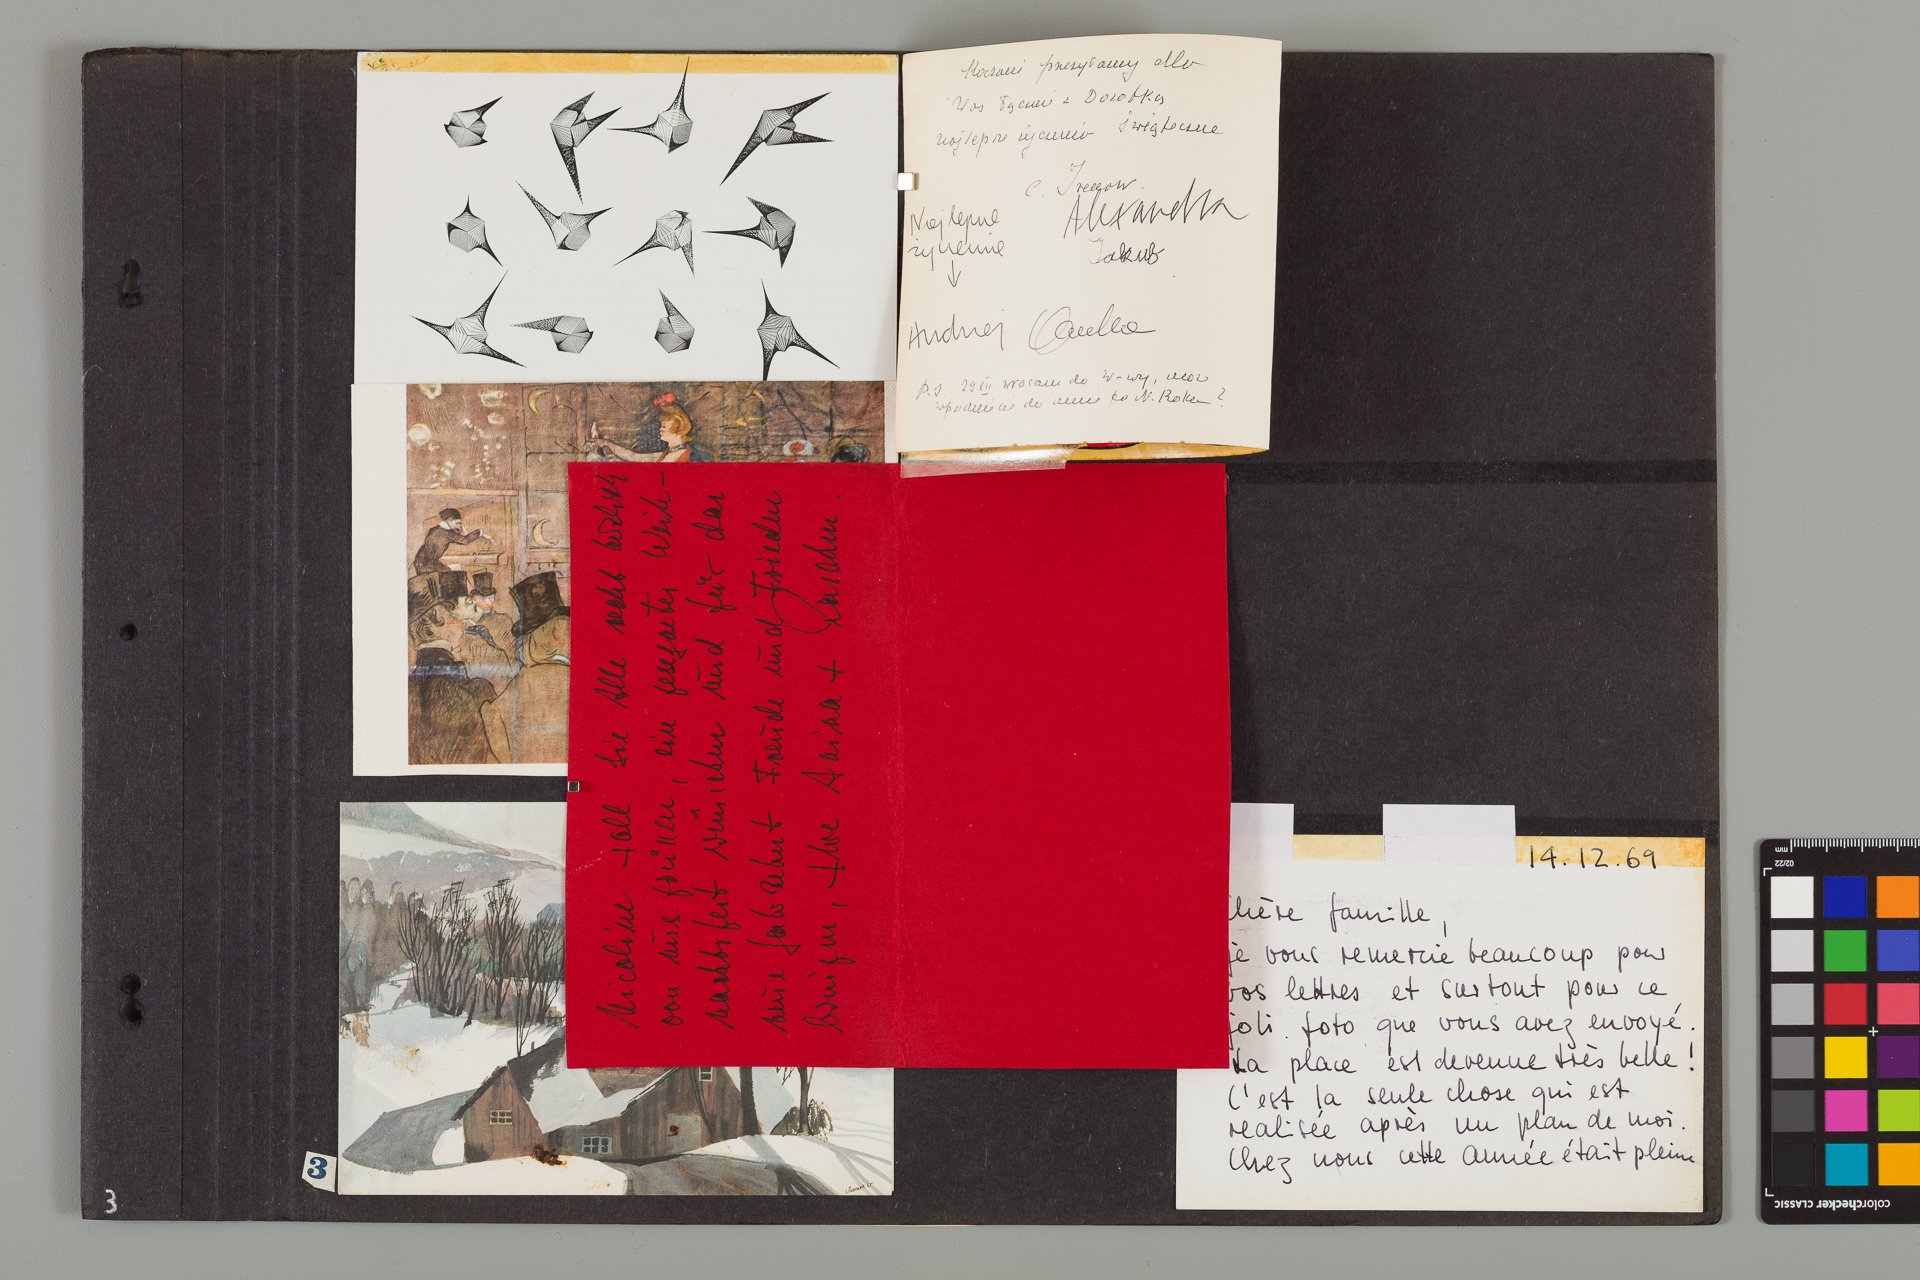 Kochani przesyłamy dla
Was Tycemi z Dorotką
najlepsze życzenia świąteczne
C. Irenow.
Alexandra
Najlepsze
życzenia
↓
Jakub
Andrzej
P.S. 29 XII wracam do W-wy, może
do mnie po N. Roku?
Nicoline + all Sie Alle recht herzlich
von uns grüssen, ein gesegnetes Weih-
nachtsfest wünschen und für das
neue Jahr nebst Freude und Frieden
+
14.12.69
chère famille,
je vous remercie beaucoup pour
vos lettres et surtout pour ce
joli foto que vous avez envoyé.
La place est devenue très belle!
C'est la seule chose qui est
realisée après un plan de moi.
Chez nous cette année était pleine
3
3
mm
02/22
colorchecker CLASSIC